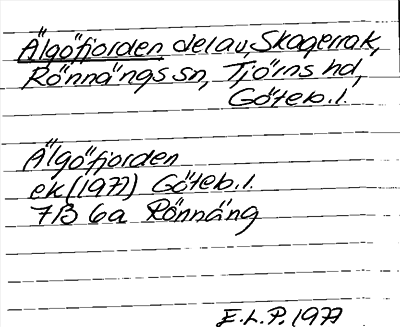 Älgöfjorden del av Skagerrak,
Rönnängs sn, Tjörns hd,
Göteb. l.
Älgöfjorden
ek (1977) Göteb. l.
7B 6a Rönnäng
E.L.P. 1977